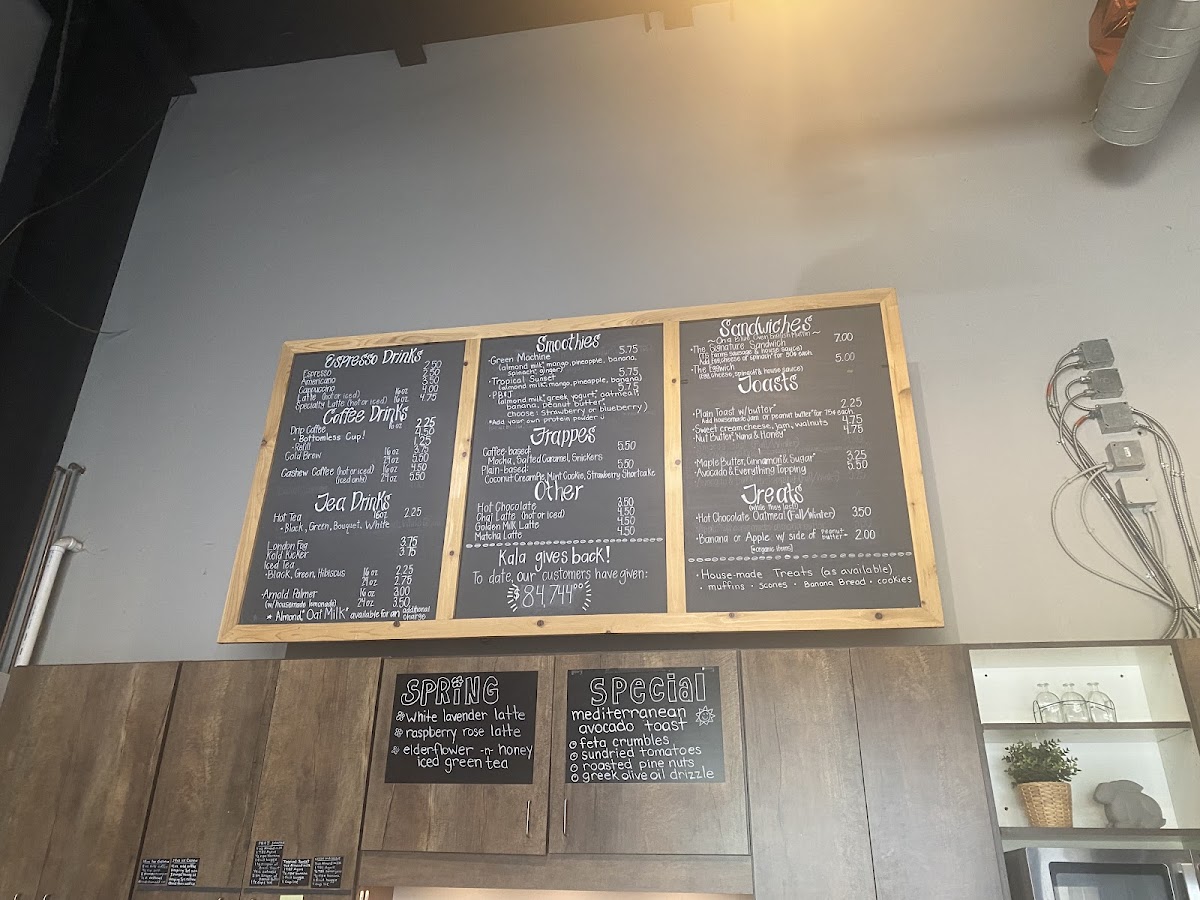 Espresso Drinks
Espresso 2.50
Americano 2.50
Cappuccino 3.50
Latte (hot or iced) 16 oz 4.00
Specialty Latte (hot or iced) 16 oz 4.75
Coffee Drinks
Drip Coffee 16 oz 2.25
• Bottomless Cup! 4.50
• Refill 1.25
Cold Brew 16 oz 3.75
24 oz 5.50
Cashew Coffee (hot or iced) 16 oz 4.50
(iced only) 24 oz 5.50
Tea Drinks
Hot Tea 16oz 2.25
• Black, Green, Bouquet, White
London Fog 3.75
Kala Kicker 3.75
Iced Tea
• Black, Green, Hibiscus 16 oz 2.25
24 oz 2.75
• Arnold Palmer 16 oz 3.00
(w/housemade lemonade) 24 oz 3.50
* Almond, Oat Milk* available for an additional charge
Smoothies
• Green Machine 5.75
(almond milk, mango, pineapple, banana,
spinach, ginger)
• Tropical Sunset 5.75
(almond milk, mango, pineapple, banana)
• PB&J 5.75
(almond milk, greek yogurt, oatmeal,
banana, peanut butter,
choose: strawberry or blueberry)
*Add your own protein powder
Frappes
Coffee-based: 5.50
Mocha, Salted Caramel, Snickers
Plain-based: 5.50
Coconut Cream Pie, Mint Cookie, Strawberry Shortcake
Other
Hot Chocolate 3.50
Chai Latte (hot or iced) 4.50
Golden Milk Latte 4.50
Matcha Latte 4.50
Kala gives back!
To date, our customers have given:
$84,744.00
Sandwiches
English Muffin ~
• The Signature Sandwich 7.00
(TS Farms sausage & house sauce)
Add egg, cheese or spinach for 50¢ each
• The Eggwich 5.00
(egg, cheese, spinach & house sauce)
Toasts
• Plain Toast w/butter* 2.25
Add housemade jam or peanut butter* for 75¢ each
• Sweet cream cheese, jam, walnuts 4.75
• Nut Butter, Nana & Honey 4.75
• Maple Butter, Cinnamon & Sugar* 3.25
• Avocado & Everything Topping 5.50
Treats
(while they last)
• Hot Chocolate Oatmeal (Fall/Winter) 3.50
• Banana or Apple w/ side of peanut butter - 2.00
[*organic items]
• House-made Treats (as available)
• muffins • scones • Banana Bread • cookies
SPRING
white lavender latte
raspberry rose latte
elderflower -n- honey
iced green tea
special
mediterranean
avocado toast
feta crumbles
sundried tomatoes
roasted pine nuts
greek olive oil drizzle